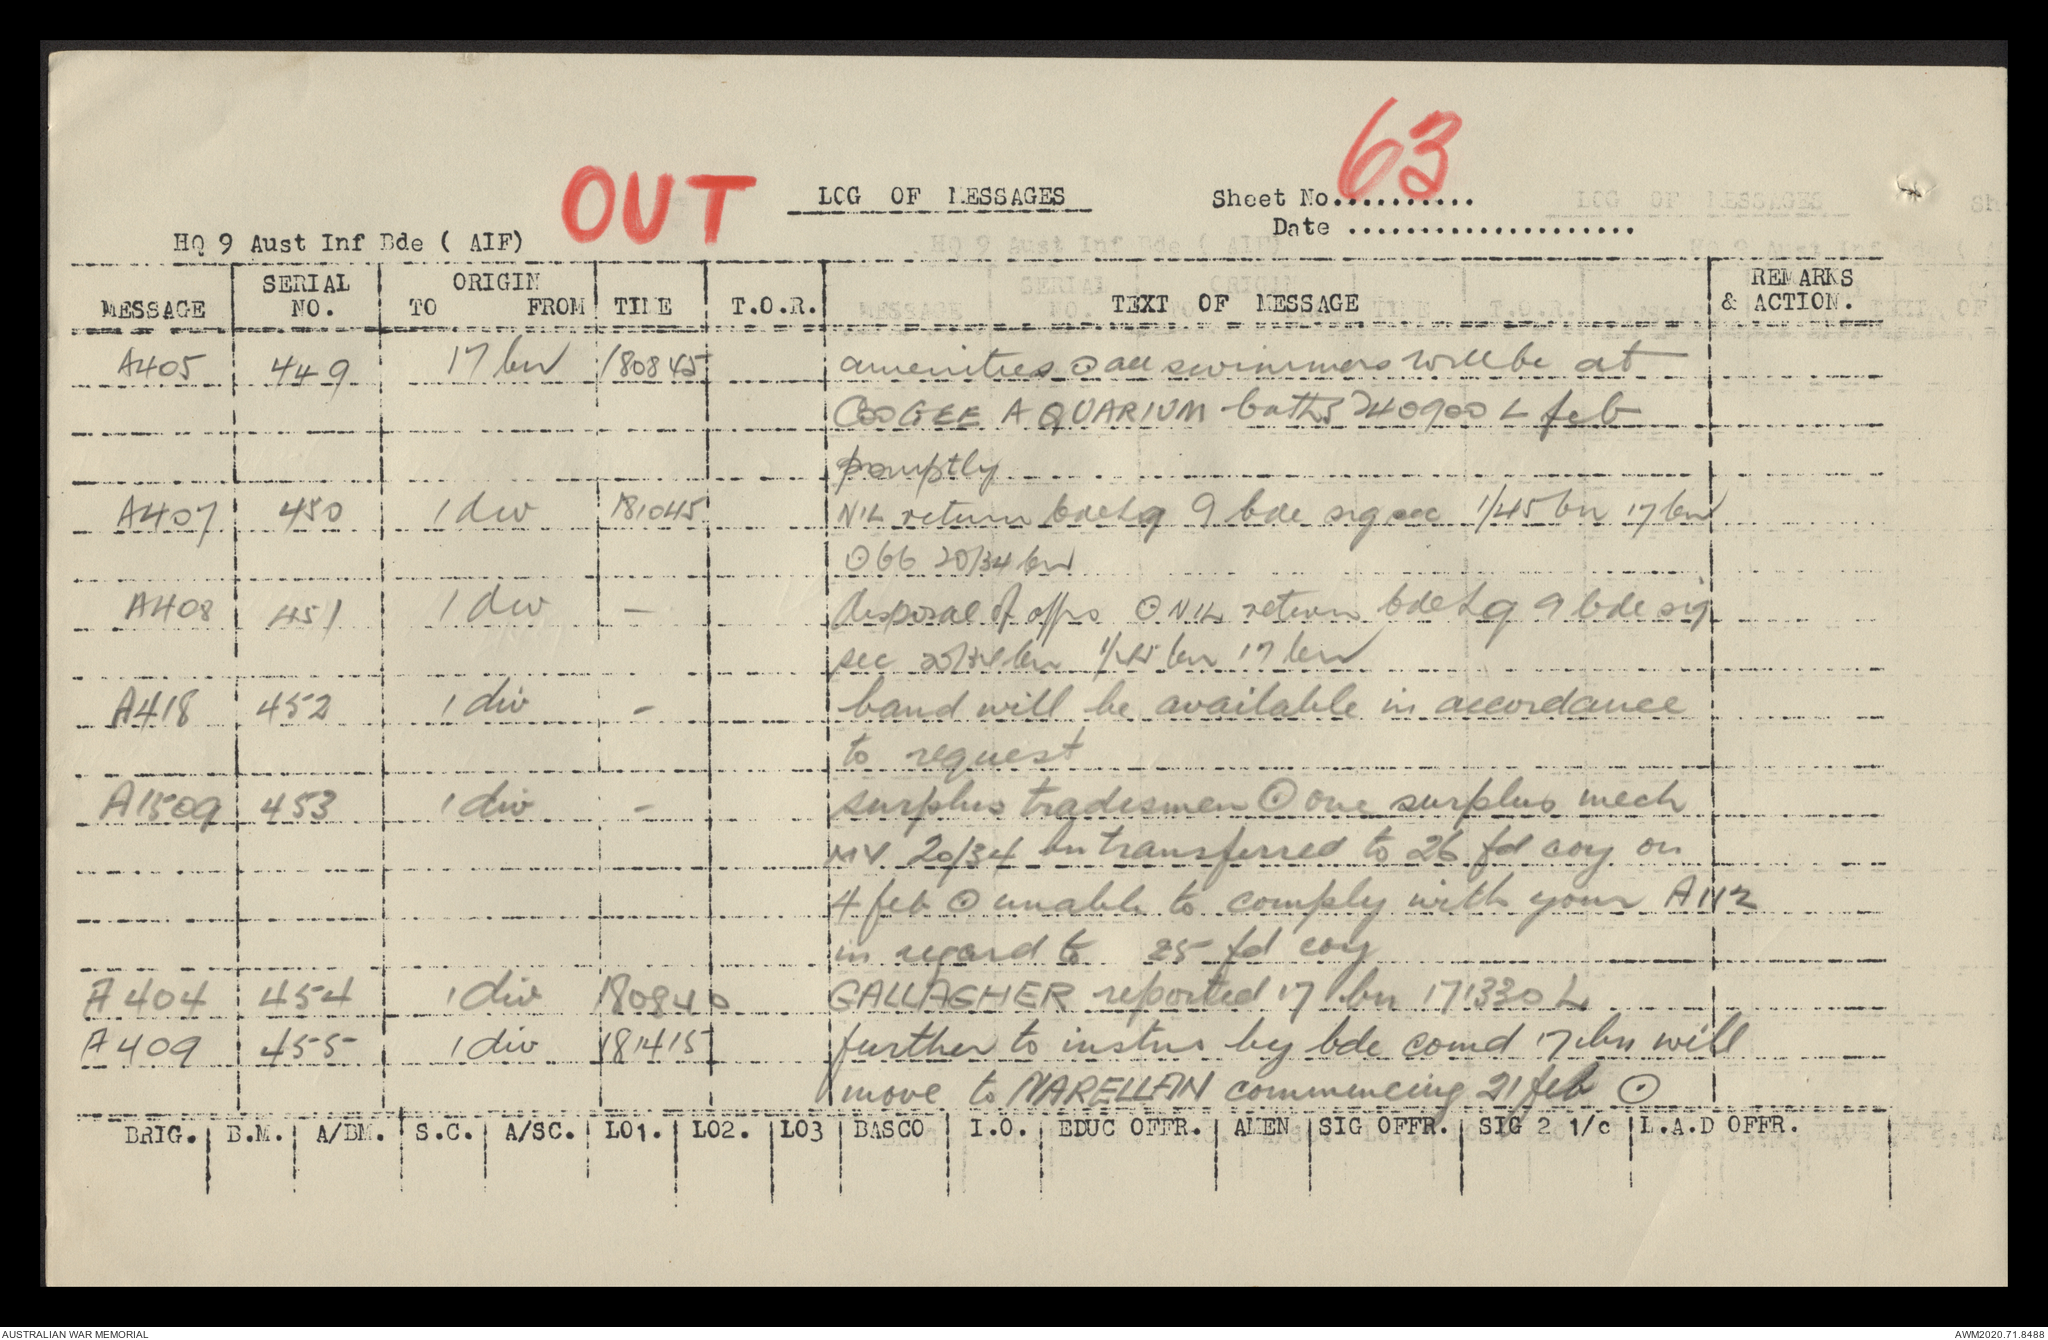 OUT
63
LOG OF MESSAGES
Sheet No..........
Date .....................
HQ 9 Aust Inf Bde ( AIF)
MESSAGE SERIAL NO. ORIGIN TO FROM TIME T.O.R. TEXT OF MESSAGE REMARKS & ACTION.
A405 449 17 bn 180845 amenities ⊙ all swimmers will be at
COOGEE AQUARIUM baths 240900 L feb
promptly
A407 450 1 div 181045 NIL return bde hq 9 bde sig sec 1/45 bn 17 bn
⊙ 66 20/34 bn
A408 451 1 div - disposal of offrs ⊙ NIL return bde hq 9 bde sig
sec 20/34 bn 1/45 bn 17 bn
A418 452 1 div - band will be available in accordance
to request
A1509 453 1 div - surplus tradesmen ⊙ one surplus mech
MV 20/34 bn transferred to 26 fd coy on
4 feb ⊙ unable to comply with your A112
in regard to 25 fd coy
A404 454 1 div 180840 GALLAGHER reported 17 bn 171330 L
A409 455 1 div 181415 further to instns by bde comd 17 bn will
move to NARELLAN commencing 21 feb ⊙
BRIG. B.M. A/BM. S.C. A/SC. LO1. LO2. LO3 BASCO I.O. EDUC OFFR. AMEN SIG OFFR. SIG 2 1/c L.A.D OFFR.
AUSTRALIAN WAR MEMORIAL
AWM2020.71.8488